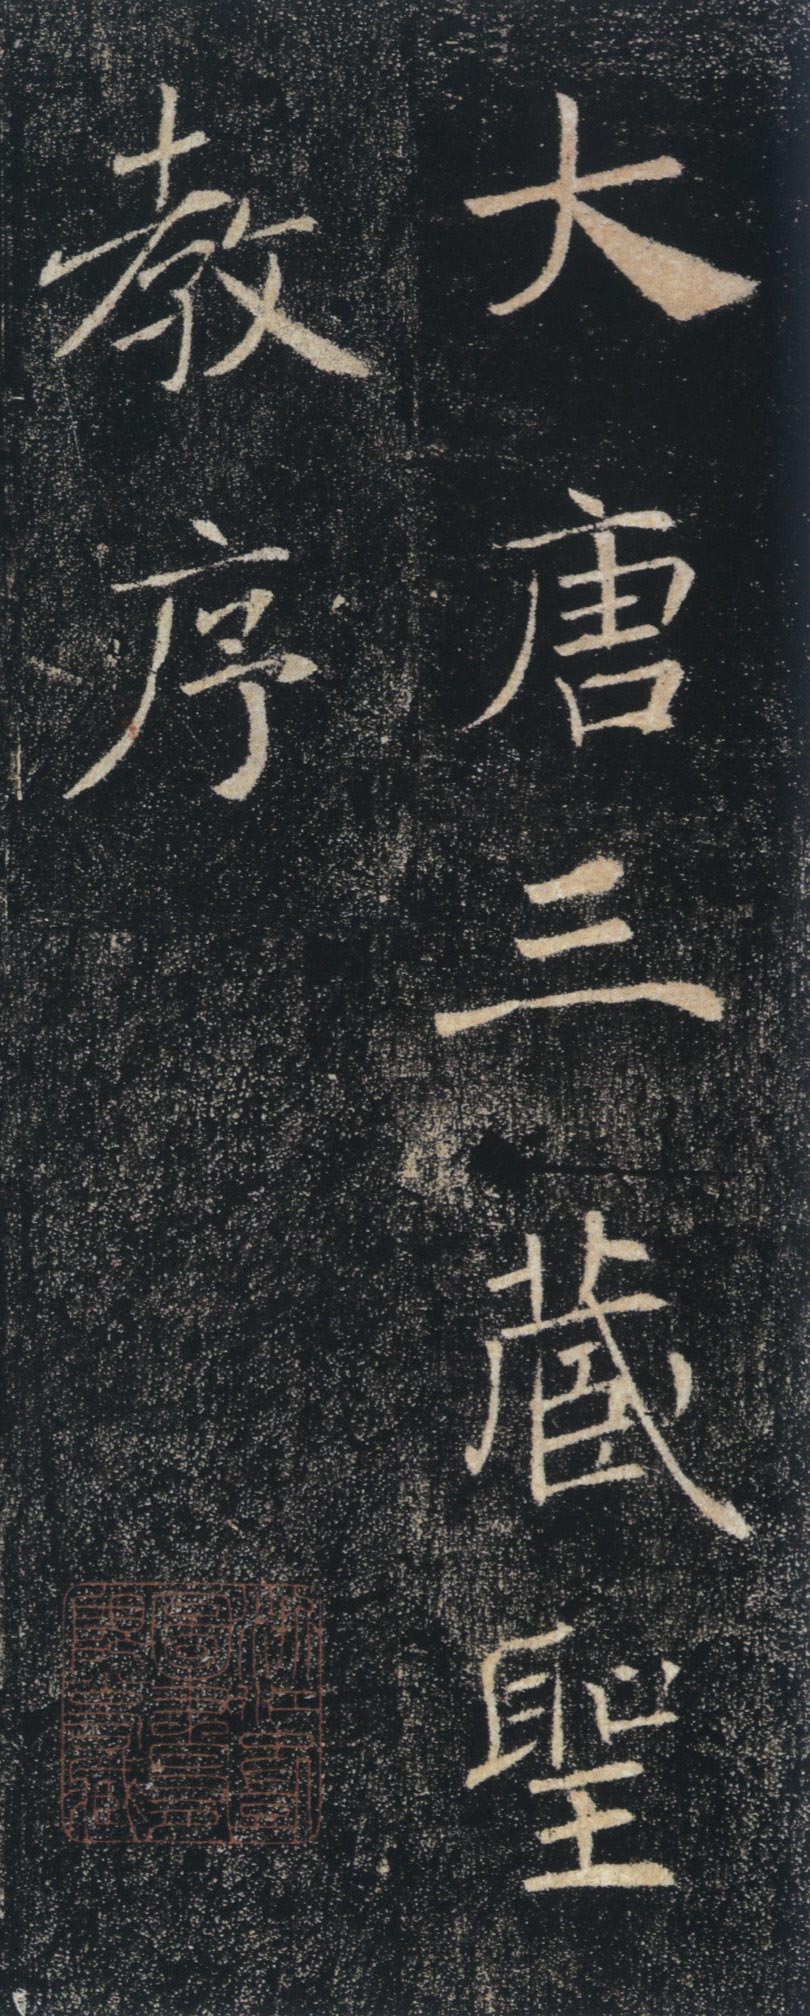 大唐三藏聖
教序